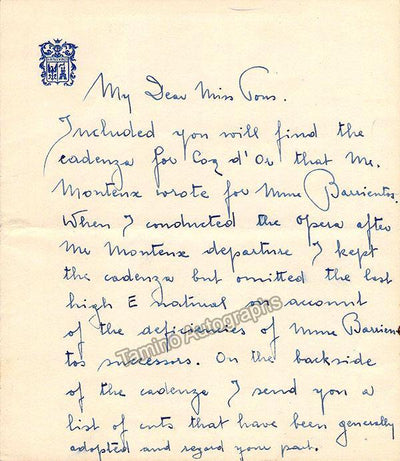 My Dear Miss Pons.
Included you will find the
cadenza for Coq d'Or that Mr.
Monteux wrote for Mme Barrientos.
When I conducted the opera after
Mr Monteux departure I kept
the cadenza but omitted the last
high E natural on account
of the deficiencies of Mme Barrien
tos successors. On the backside
of the cadenza I send you a
list of cuts that have been generally
adopted and regard your part.
Tamino Autographs